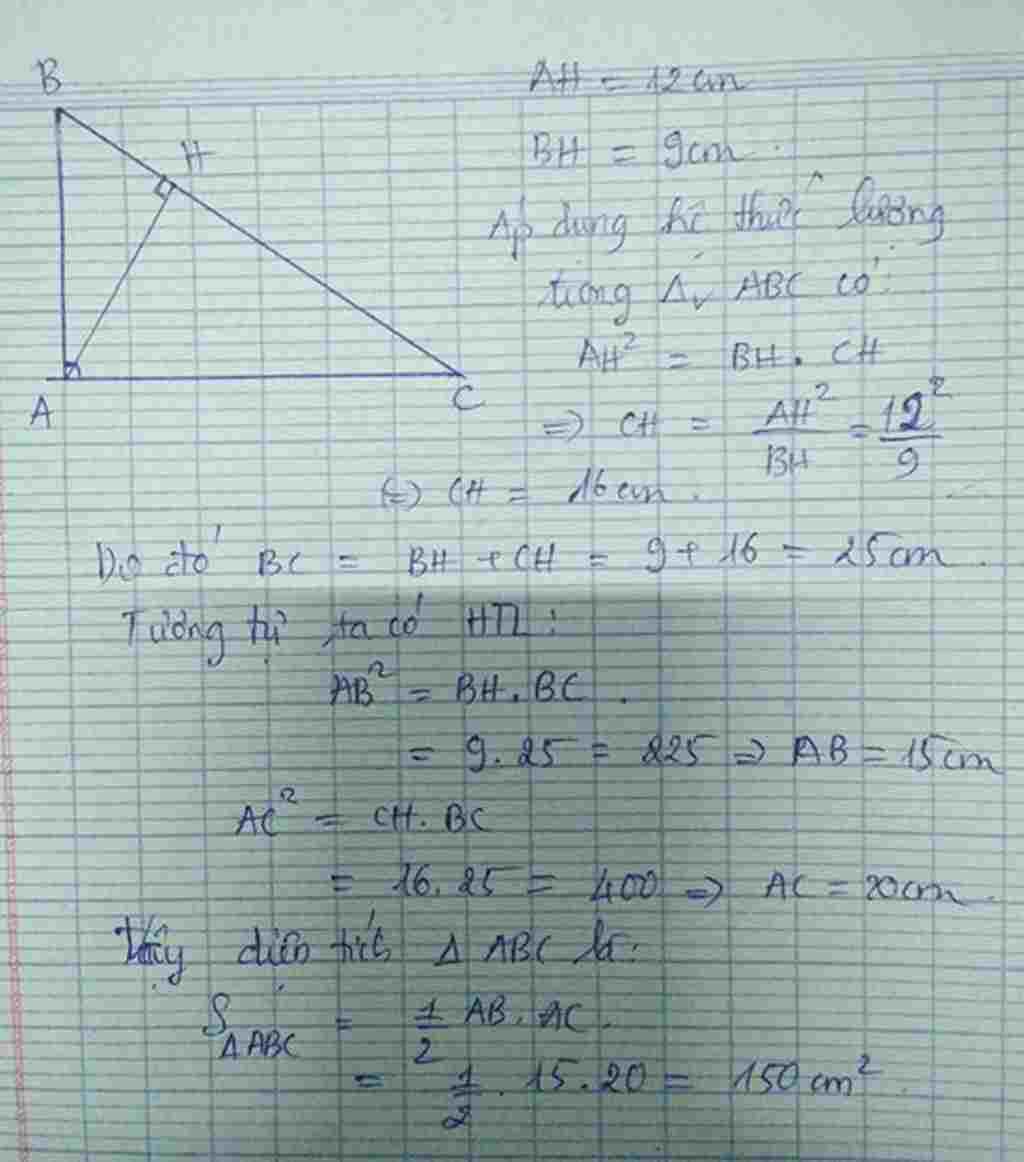 B
H
A
C
AH = 12cm
BH = 9cm.
Áp dụng hệ thức lượng
trong Δv ABC có:
AH² = BH. CH
=> CH = AH²/BH = 12²/9
(=) CH = 16cm.
Do đó BC = BH + CH = 9 + 16 = 25cm.
Tương tự ta có HTL:
AB² = BH. BC.
= 9. 25 = 225 => AB = 15cm
AC² = CH. BC
= 16. 25 = 400 => AC = 20cm.
Vậy diện tích Δ ABC là:
SΔABC = 1/2 AB. AC.
= 1/2 . 15. 20 = 150cm²